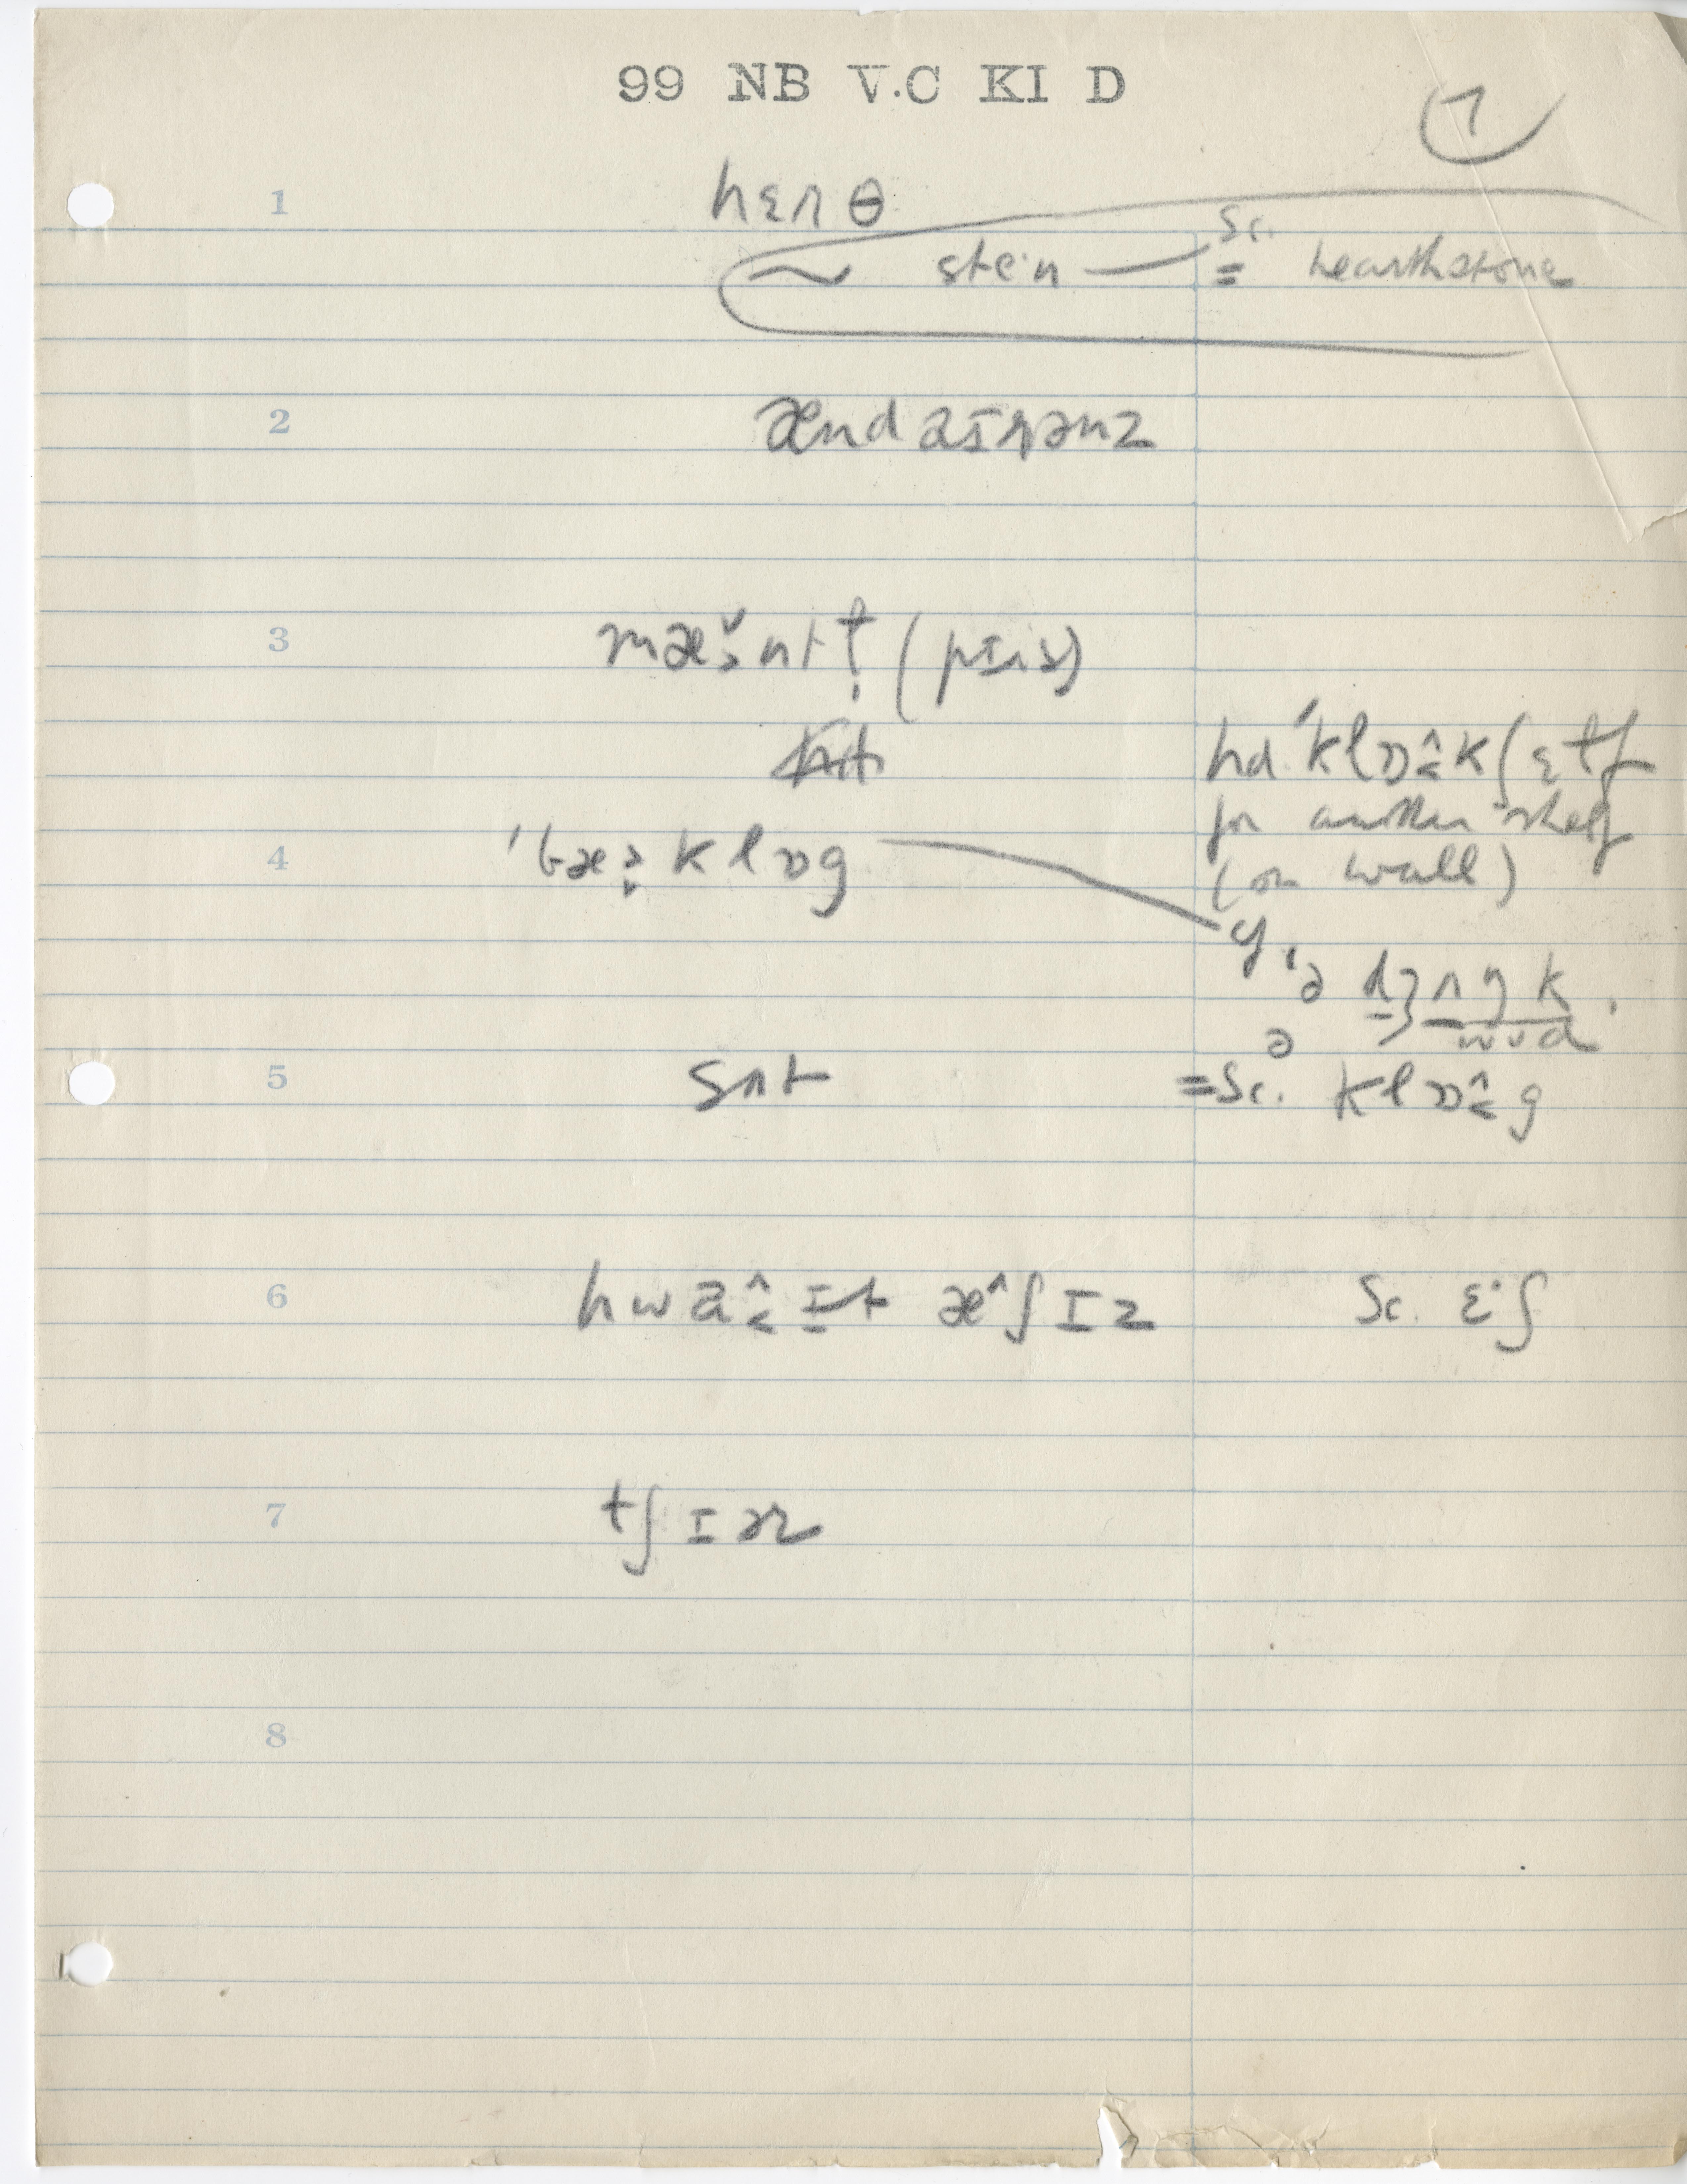 99 NB V.C KI D
7
1 hɛɹθ
~ ste·n — Sc. = hearthstone
2 ændaɪɹənz
3 (pɪɪs)
for another shelf
(on wall)
4 klɒg
cf.
ə dʒʌŋk
ə wud
5 sʌt
=Sc. klɒ g
6 hwa ɪt æ^ʃɪz Sc. ɛ·ʃ
7 tʃɪər
8